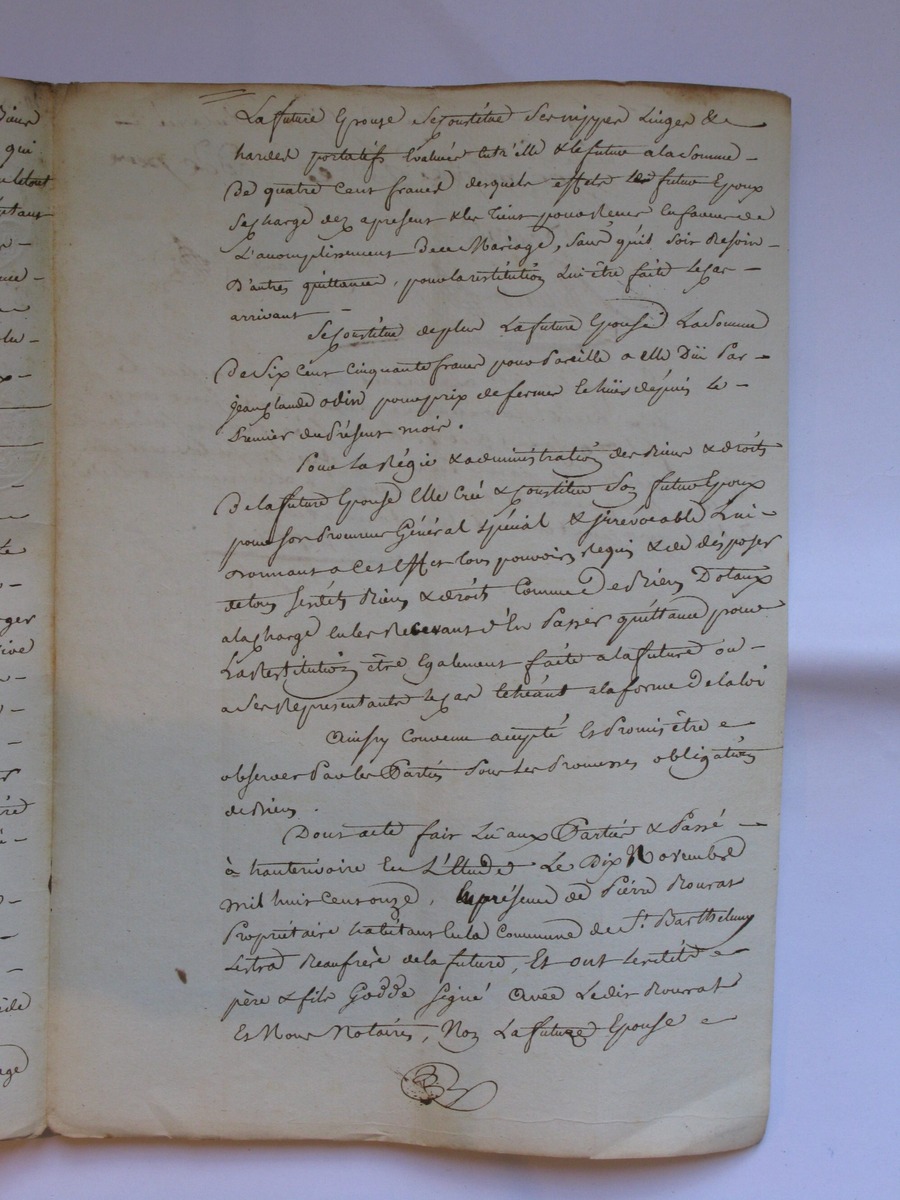 La future Epouse Se Constitue Ses nippes Linges &
hardes portatifs Evalués entr'elle & le futur a la Somme
De quatre Cent francs desquels effets le futur Epoux
Se charge dez apresent & les tient pour Reçus En faveur de
L'accomplissement De ce Mariage, Sans qu'il Soit Besoin
D'autres quittance, pour la restitution Lui être faite le cas
arrivant
Se Constitue de plus La future Epouse La Somme
De Six Cent Cinquante francs pour Pareille a elle Düe Par
jean Claude odin pour prix de ferme Echüs depuis le
Premier du Présent mois.
Pour La Régie & administration des Biens & droits
De la future Epouse Elle Créé & Constitue Son futur Epoux
pour Son Procureur Général Spécial & jrrévocable Lui
Donnant a Cet Effet tous pouvoirs Requis & de disposer
de tous Sesdits Biens & droits Comme De Biens Dotaux
a la charge En les Recevant d'En Passer quittance pour
La Restitution être Egalement faite a la future ou
a Ses Représentants le cas Echéant a la forme De la loi
Ainsy Convenu accepté Et Promis être
observer Par les Parties Sous Les Promesses obligation
de Biens.
Dont acte fait Lu aux Parties & Passé
à hauterivoire En L'Etude Le Dix Novembre
mil huit Cent onze, En présence de Pierre Rourat
Propriétaire habitant En la Commune de St. Barthelemy
Lestra Beaufrère de la future, Et ont Lesdits
père & fils Godde Signé Avec Ledit Rourat
Et Nous Notaires, Non La future Epouse